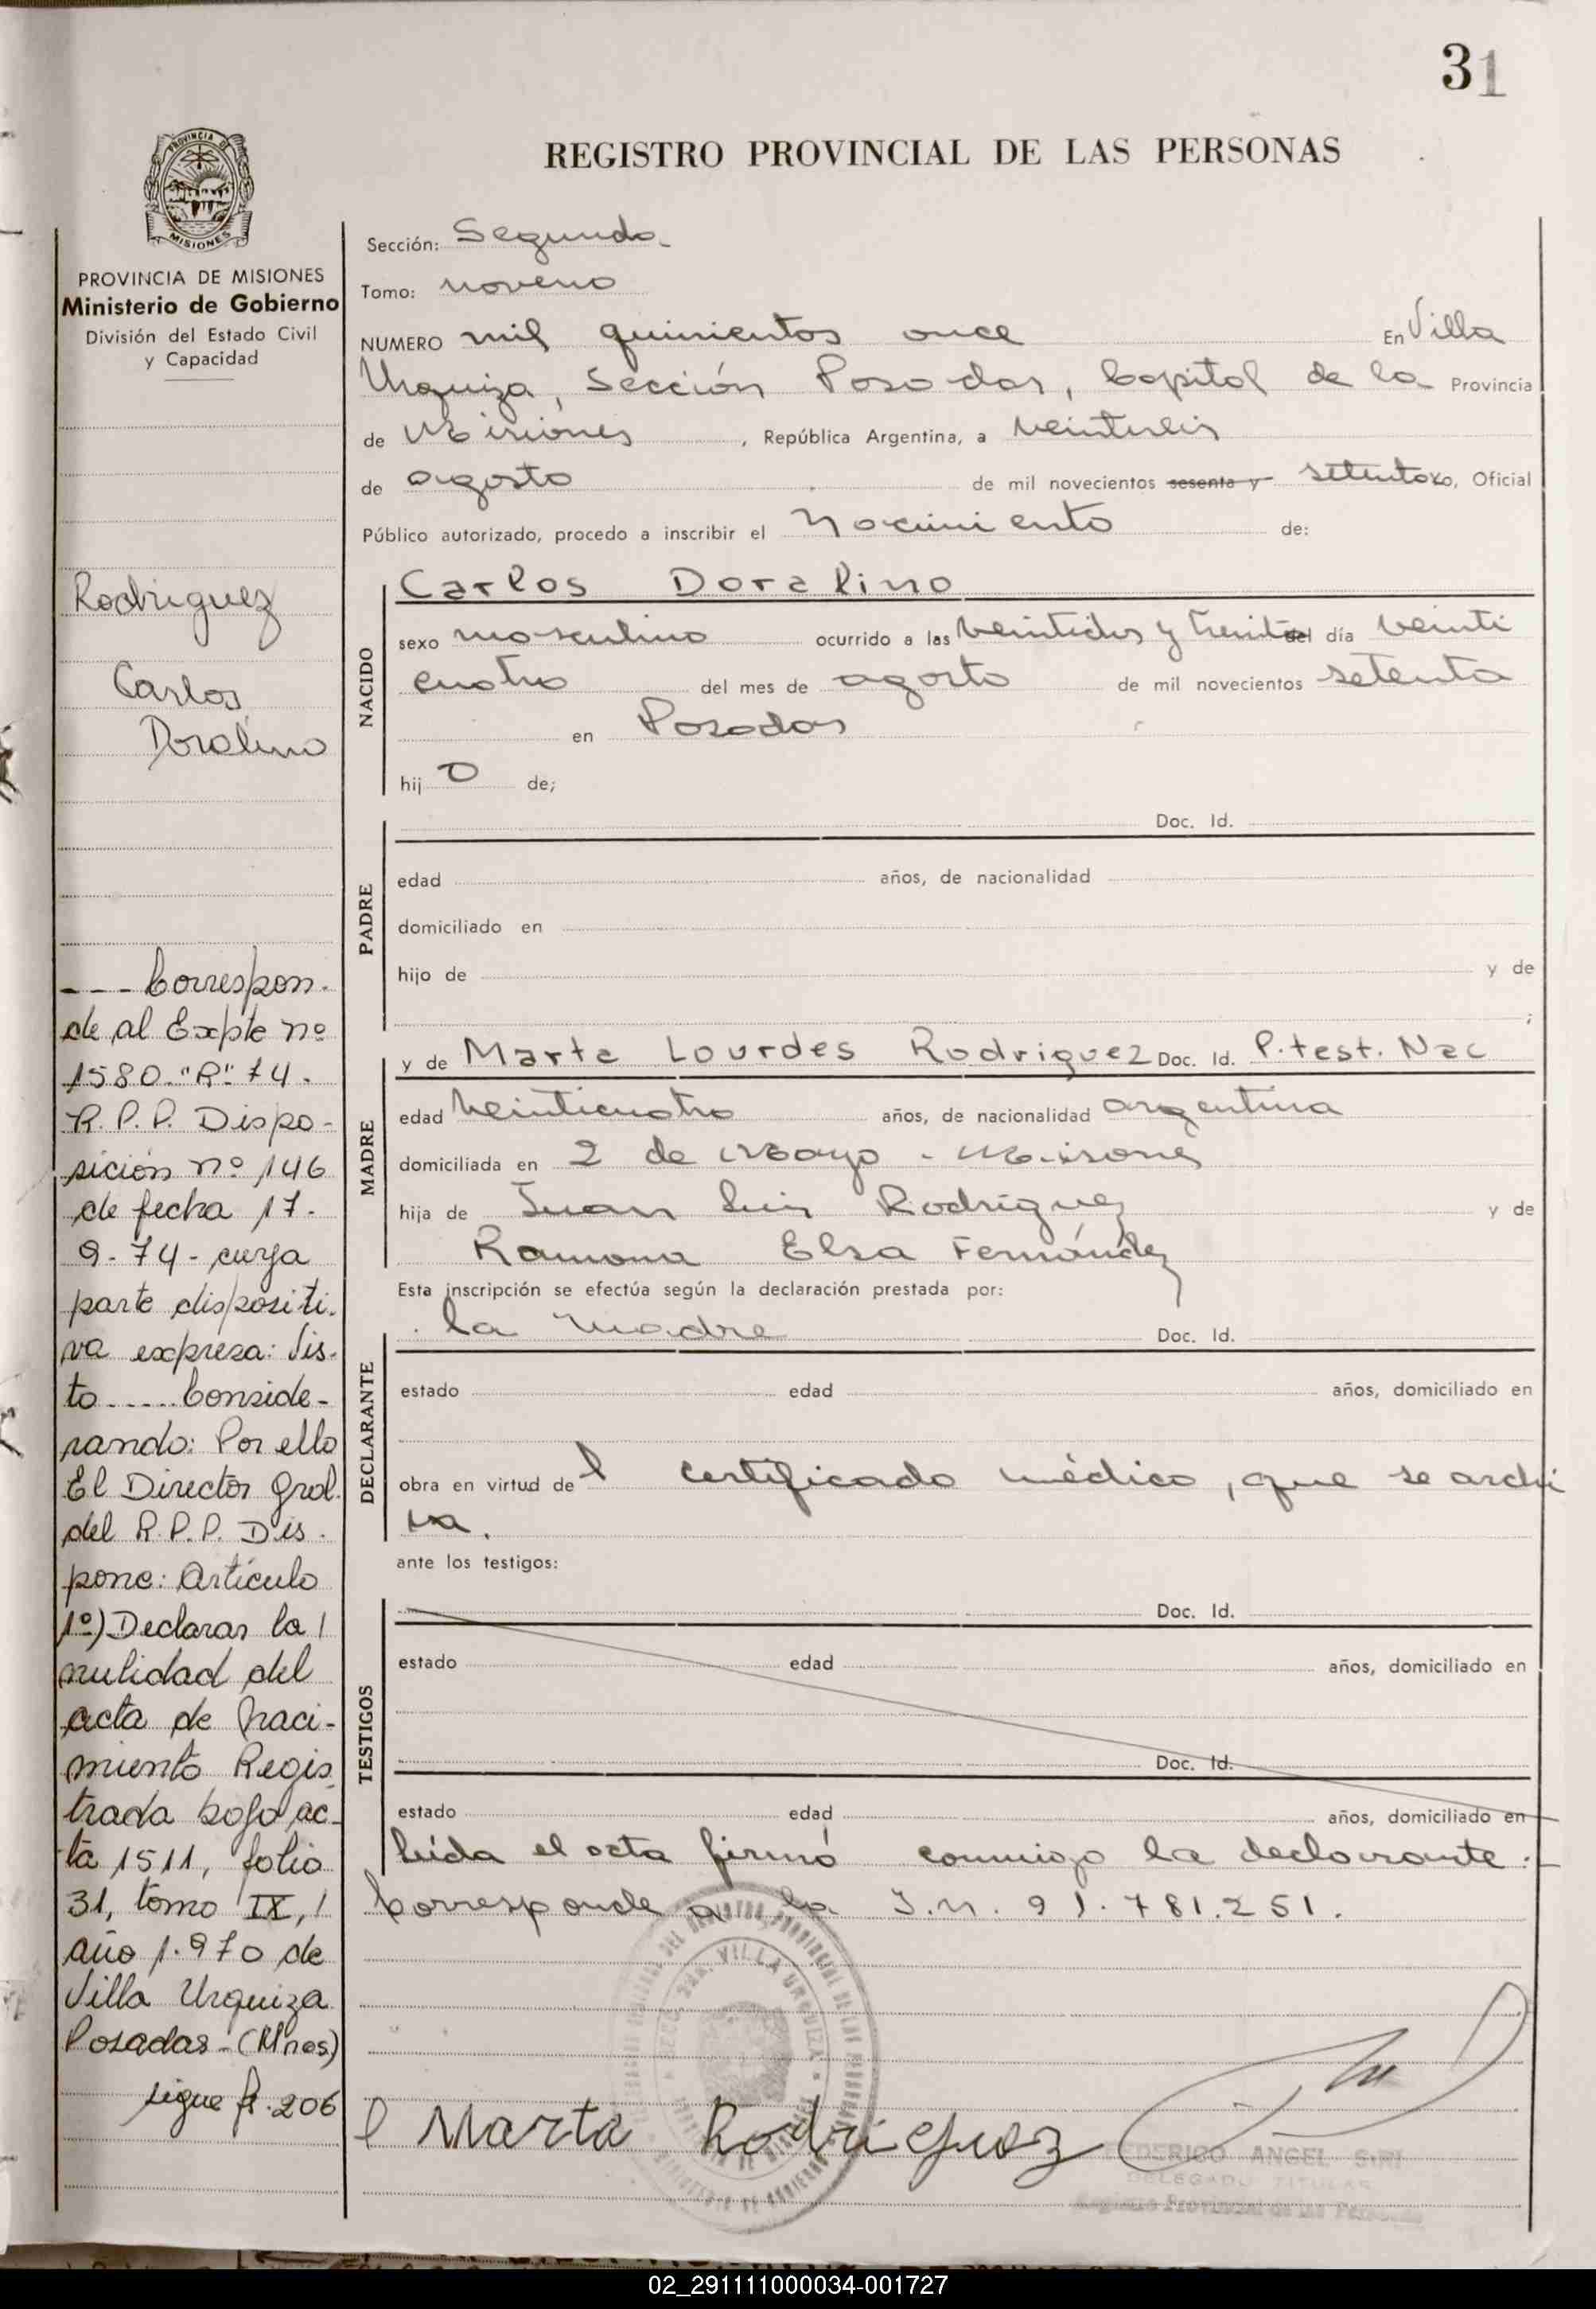 31
REGISTRO PROVINCIAL DE LAS PERSONAS
PROVINCIA DE MISIONES
PROVINCIA DE MISIONES
Ministerio de Gobierno
División del Estado Civil
y Capacidad
Rodriguez
Carlos
Doralino
--- Correspon.
de al Expte nº
1580 "R" 74.
R. P. P. Dispo-
sición nº 146
de fecha 17-
9-74- cuya
parte dispositi.
va expresa: Vis-
to ..... Conside-
rando: Por ello
El Director Gral.
del R. P. P. Dis.
pone: Artículo
1º) Declarar la
nulidad del
acta de naci-
miento Regis
trada bajo ac-
ta 1511, folio
31, tomo IX,
año 1.970 de
Villa Urquiza
Posadas - (Mnes)
sigue fº. 206
Sección: Segunda
Tomo: noveno
NUMERO mil quinientos once En Villa
Urquiza, Sección Posadas, Capital de la Provincia
de Misiones, República Argentina, a veintiseis
de agosto de mil novecientos sesenta y setenta yo, Oficial
Público autorizado, procedo a inscribir el Nacimiento de:
NACIDO
Carlos Doralino
sexo masculino ocurrido a las veintidos y treinta del día veinti
cuatro del mes de agosto de mil novecientos setenta
en Posadas
hijo de;
PADRE
Doc. Id.
edad años, de nacionalidad
domiciliado en
hijo de y de
;
MADRE
y de Marta Lourdes Rodriguez Doc. Id. P. test. Nac
edad veinticuatro años, de nacionalidad argentina
domiciliada en 2 de Mayo - Misiones
hija de Juan Luis Rodríguez y de
Ramona Elsa Fernández
Esta inscripción se efectúa según la declaración prestada por:
DECLARANTE
la madre Doc. Id.
estado edad años, domiciliado en
obra en virtud del certificado médico, que se archi
va.
ante los testigos:
TESTIGOS
Doc. Id.
estado edad años, domiciliado en
Doc. Id.
estado edad años, domiciliado en
leída el acta firmó conmigo la declarante.
Corresponde a la I.N. 91.781.251.
VILLA URQUIZA
Marta Rodriguez
FEDERICO ANGEL SIRI
DELEGADO TITULAR
Registro Provincial de las Personas
02_291111000034-001727